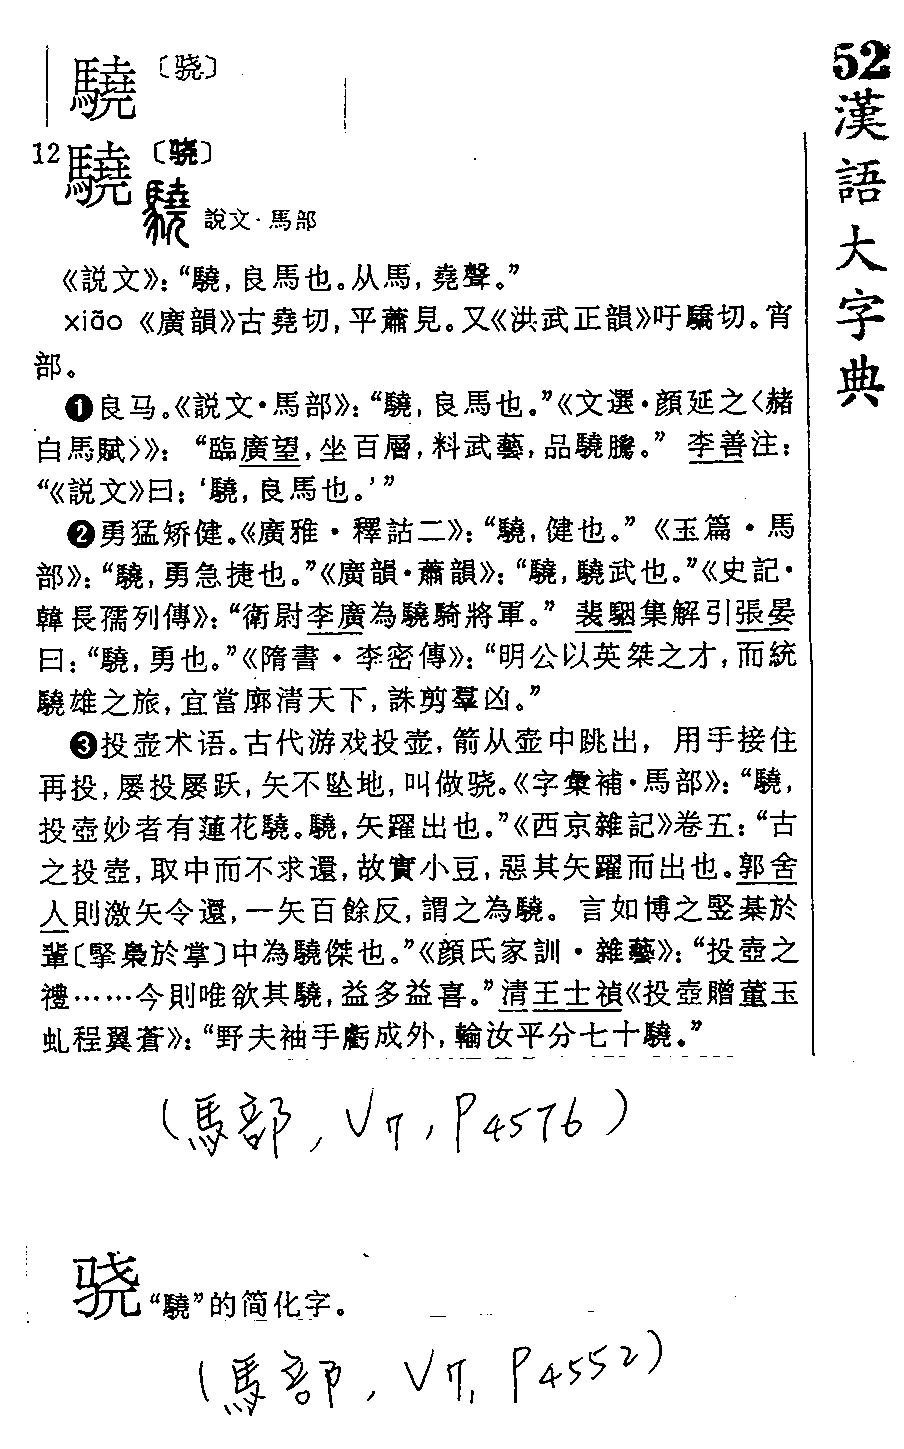 52漢語大字典
驍〔骁〕
12驍〔骁〕
驍 說文·馬部
《説文》：“驍，良馬也。从馬，堯聲。”
xiāo 《廣韻》古堯切，平蕭見。又《洪武正韻》吁驕切。宵
部。
❶良马。《説文·馬部》：“驍，良馬也。”《文選·顔延之〈赭
白馬賦〉》：“臨廣望，坐百層，料武藝，品驍騰。”李善注：
“《説文》曰：‘驍，良馬也。’”
❷勇猛矫健。《廣雅·釋詁二》：“驍，健也。”《玉篇·馬
部》：“驍，勇急捷也。”《廣韻·蕭韻》：“驍，驍武也。”《史記·
韓長孺列傳》：“衛尉李廣為驍騎將軍。”裴駰集解引張晏
曰：“驍，勇也。”《隋書·李密傳》：“明公以英桀之才，而統
驍雄之旅，宜當廓清天下，誅剪羣凶。”
❸投壶术语。古代游戏投壶，箭从壶中跳出，用手接住
再投，屡投屡跃，矢不坠地，叫做骁。《字彙補·馬部》：“驍，
投壺妙者有蓮花驍。驍，矢躍出也。”《西京雜記》卷五：“古
之投壺，取中而不求還，故實小豆，惡其矢躍而出也。郭舍
人則激矢令還，一矢百餘反，謂之為驍。言如博之竪棊於
輩〔掔梟於掌〕中為驍傑也。”《顔氏家訓·雜藝》：“投壺之
禮……今則唯欲其驍，益多益喜。”清王士禎《投壺贈董玉
虬程翼蒼》：“野夫袖手虧成外，輸汝平分七十驍。”
(馬部, V7, P4576)
骁“驍”的简化字。
(馬部, V7, P4552)